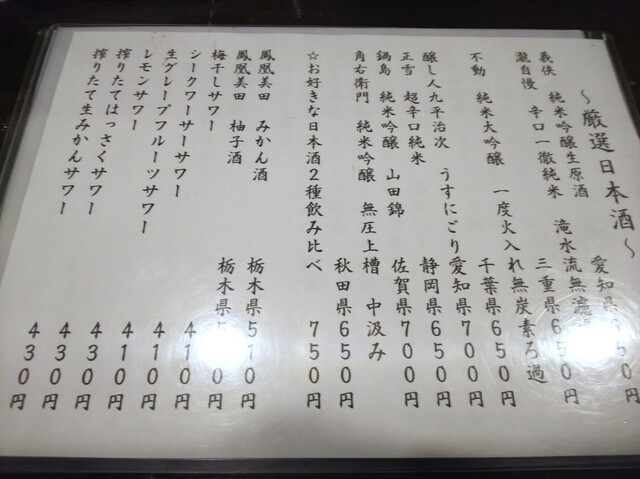 ～厳選日本酒～
義侠 純米吟醸生原酒 愛知県650円
滝水流無濾過
瀧自慢 辛口一徹純米 三重県650円
一度火入れ無炭素ろ過
不動 純米大吟醸 千葉県650円
醸し人九平治次 うすにごり 愛知県700円
正雪 超辛口純米 静岡県650円
鍋島 純米吟醸 山田錦 佐賀県700円
角右衛門 純米吟醸 無圧上槽 中汲み
秋田県650円
☆お好きな日本酒2種飲み比べ 750円
鳳凰美田 みかん酒 栃木県510円
鳳凰美田 柚子酒 栃木県
梅干しサワー 410円
シークワーサーサワー 410円
生グレープフルーツサワー 410円
レモンサワー 430円
搾りたてはっさくサワー 430円
搾りたて生みかんサワー 430円